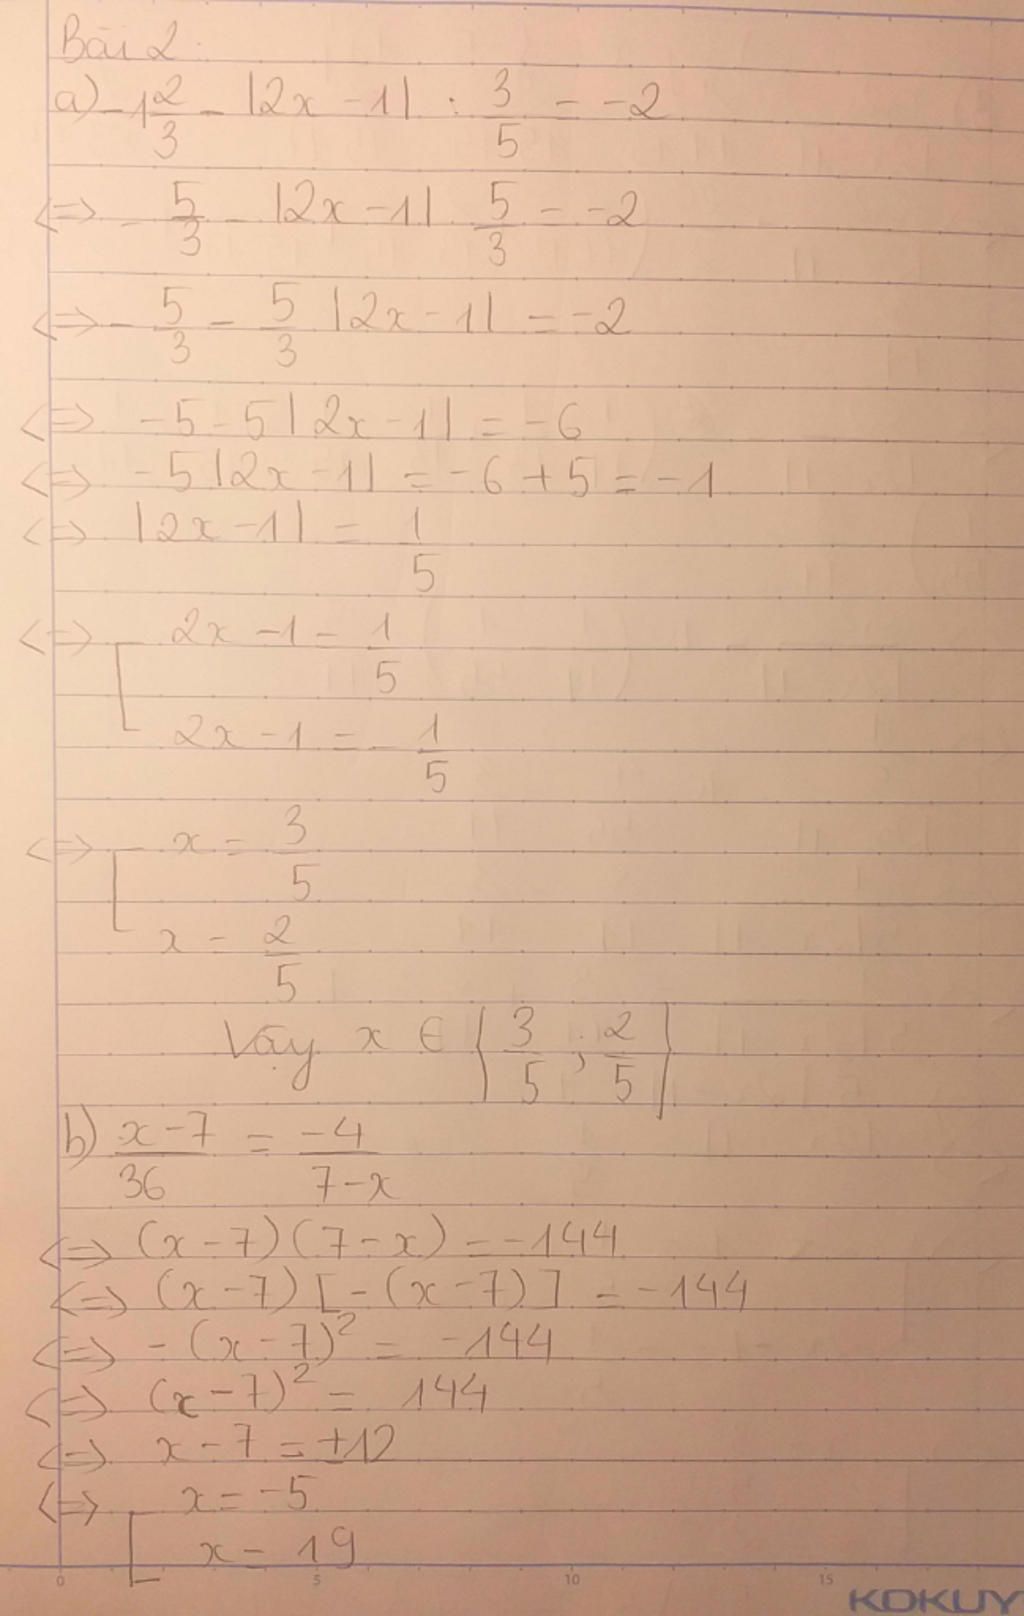 Bài 2:
a) -1 2/3 - |2x - 1| : 3/5 = -2
<=> - 5/3 - |2x - 1| . 5/3 = -2
<=> - 5/3 - 5/3 |2x - 1| = -2
<=> -5 - 5|2x - 1| = -6
<=> -5|2x - 1| = -6 + 5 = -1
<=> |2x - 1| = 1/5
<=> [ 2x - 1 = 1/5
2x - 1 = - 1/5
<=> [ x = 3/5
x = 2/5
Vậy x ∈ { 3/5 ; 2/5 }
b) x - 7/36 = -4/7 - x
<=> (x - 7)(7 - x) = -144
<=> (x - 7)[-(x - 7)] = -144
<=> -(x - 7)² = -144
<=> (x - 7)² = 144
<=> x - 7 = ±12
<=> [ x = -5
x = 19
0 5 10 15
KOKUY